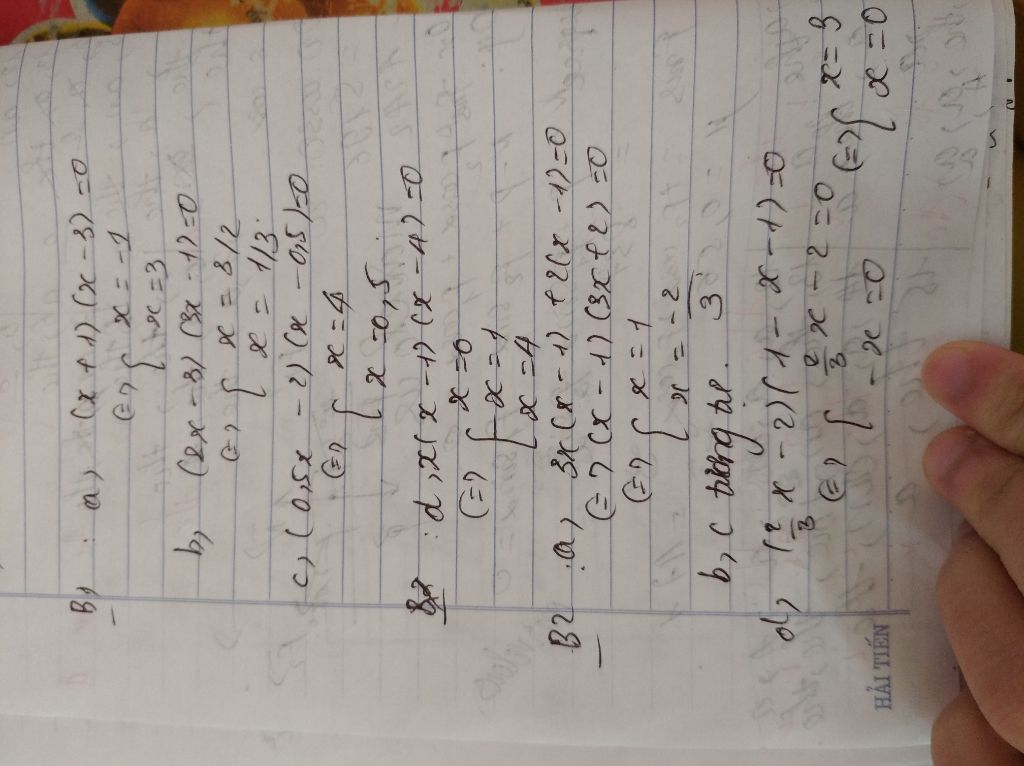 B1 : a, (x+1)(x-3)=0
(=) { x=-1
x=3
b, (2x-3)(3x-1)=0
(=) { x=3/2
x=1/3
c, (0,5x-2)(x-0,5)=0
(=) { x=4
x=0,5
d, x(x-1)(x-4)=0
(=) { x=0
x=1
x=4
B2 : a, 3x(x-1)+2(x-1)=0
(=) (x-1)(3x+2)=0
(=) { x=1
x=-2/3
b, c tương tự.
d, (2/3x-2)(1-x-1)=0
(=) { 2/3x-2=0 (=) { x=3
-x=0 x=0
HẢI TIẾN